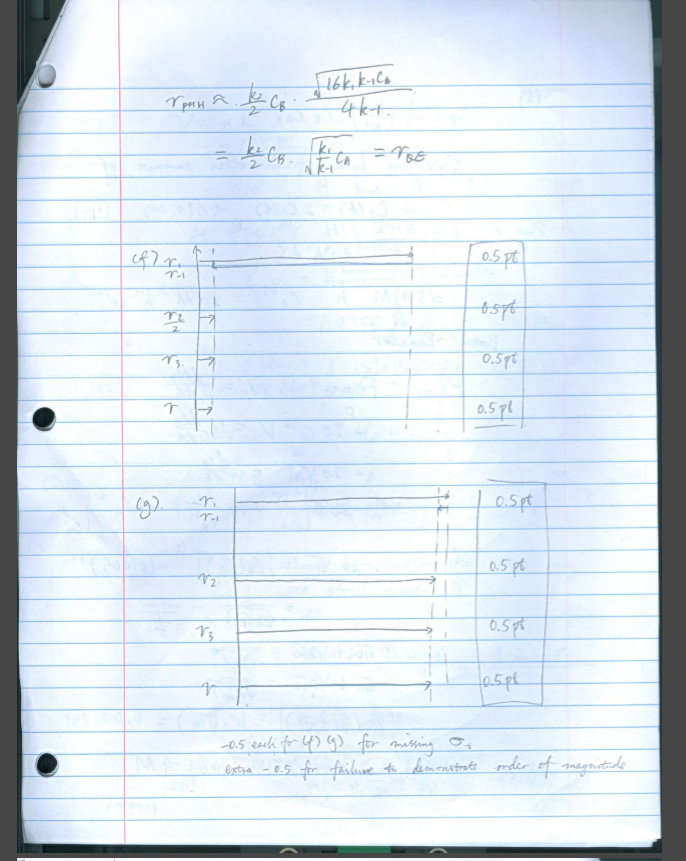 r_PSSH ≈ k₂/2 C_B · √(16k₁k₋₁C_A) / 4k₋₁.
= k₂/2 C_B · √(k₁/k₋₁ C_A) = r_QE
(f) r₁ 0.5 pt
r₋₁
r₂/2 0.5 pt
r₃ 0.5 pt
r 0.5 pt
(g). r₁ 0.5 pt
r₋₁
r₂ 0.5 pt
r₃ 0.5 pt
r 0.5 pt
-0.5 each for (f) (g) for missing
extra -0.5 for failure to demonstrate order of magnitude